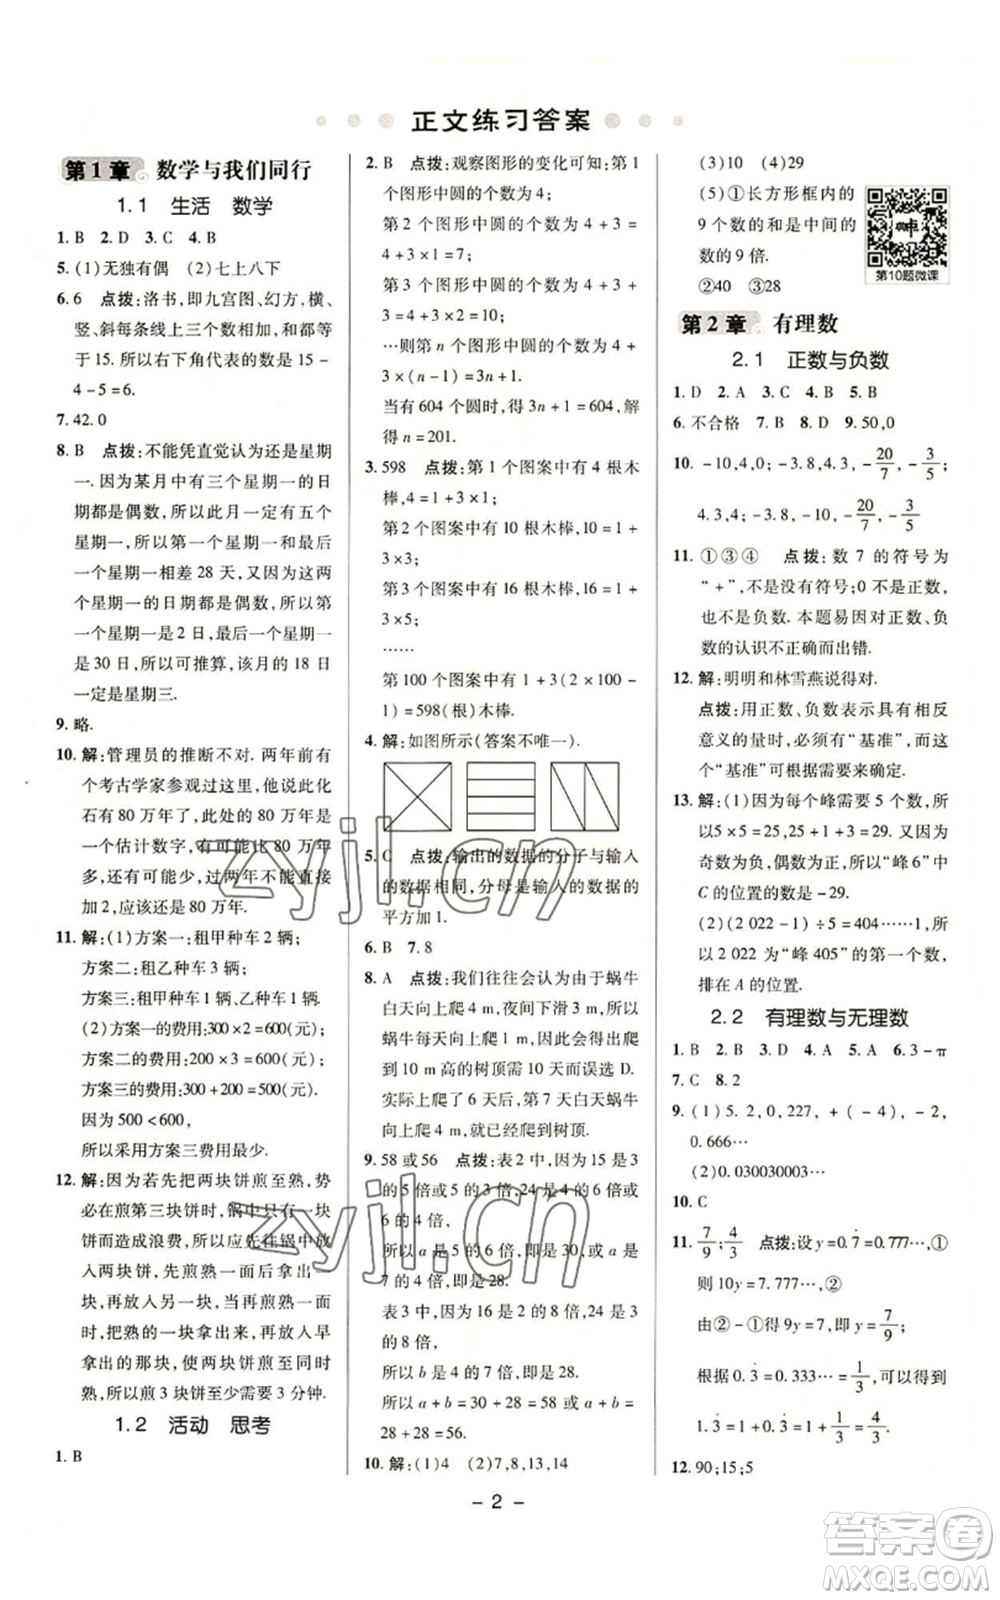 正文练习答案
第1章 数学与我们同行
1.1 生活 数学
1. B 2. D 3. C 4. B
5. (1)无独有偶 (2)七上八下
6. 6 点拨:洛书,即九宫图、幻方,横、
竖、斜每条线上三个数相加,和都等
于 15. 所以右下角代表的数是 15 -
4 - 5 = 6.
7. 42. 0
8. B 点拨:不能凭直觉认为还是星期
一. 因为某月中有三个星期一的日
期都是偶数,所以此月一定有五个
星期一,所以第一个星期一与第五
个星期一相差 28 天,又因为第一、
三、五个星期一的日期都是偶数,所以第
一个星期一是 2 日,最后一个星期一
是 30 日,所以可推算,该月的 18 日
一定是星期三.
9. 略.
10. 解:管理员的推断不对. 两年前有
个考古学家参观过这里,他说此化
石有 80 万年了,此处的 80 万年是
一个估计数字,有可能比 80 万年
多,还可能少,过两年不能直接
加 2,应该还是 80 万年.
11. 解:(1)方案一:租甲种车 2 辆;
方案二:租乙种车 3 辆;
方案三:租甲种车 1 辆、乙种车 1 辆.
(2)方案一的费用:300 × 2 = 600(元);
方案二的费用:200 × 3 = 600(元);
方案三的费用:300 + 200 = 500(元).
因为 500 < 600,
所以采用方案三费用最少.
12. 解:因为若先把两块饼煎至熟,势
必在煎第三块饼时,锅中只有一块
饼而造成浪费,所以应先往锅中放入
两块饼,先煎熟一面后拿出一
块,再放入另一块,当再煎熟一面
时,把熟的一块拿出来,再放入早
拿出的那块,使两块饼同时全部煎
熟,所以煎 3 块饼至少需要 3 分钟.
1.2 活动 思考
1. B
2. B 点拨:观察图形的变化可知:第 1
个图形中圆的个数为 4;
第 2 个图形中圆的个数为 4 + 3 =
4 + 3 × 1 = 7;
第 3 个图形中圆的个数为 4 + 3 +
3 = 4 + 3 × 2 = 10;
…则第 n 个图形中圆的个数为
4 + 3 × (n - 1) = 3n + 1;
当有 604 个圆时,得 3n + 1 = 604,解
得 n = 201.
3. 598 点拨:第 1 个图案中有 4 根木
棒,4 = 1 + 3 × 1;
第 2 个图案中有 10 根木棒,10 = 1 +
3 × 3;
第 3 个图案中有 16 根木棒,16 = 1 +
3 × 5;
……
第 100 个图案中有 1 + 3(2 × 100 -
1) = 598(根)木棒.
4. 解:如图所示(答案不唯一).
5. C 点拨:输出的数据的分子与输入
的数据相同,分母是输入的数据的
平方加 1.
6. B 7. 8
8. A 点拨:我们往往会认为由于蜗牛
白天向上爬 4 m,夜间下滑 3 m,所以
蜗牛每天向上爬 1 m,所以爬上
10 m 高的树顶,需 10 天而误选 D.
实际上爬了 6 天后,第 7 天蜗牛只需
向上爬 4 m,就已经爬到树顶.
9. 58 或 56 点拨:表 2 中,因为 15 是 3
的 5 倍或 5 的 3 倍,24 是 4 的 6 倍或
6 的 4 倍,
所以 a 是 5 的 6 倍,即是 30,或者是
7 的 4 倍,即是 28.
表 3 中,因为 16 是 2 的 8 倍,24 是 3
的 8 倍,
所以 b 是 4 的 7 倍,即是 28.
所以 a + b = 30 + 28 = 58 或 a + b =
28 + 28 = 56.
10. 解:(1)4 (2)7,8,13,14
(3)10 (4)29
(5)①长方形框内的
9 个数的和是中间的
数的 9 倍.
②40 ③28
第10题微课
第2章 有理数
2.1 正数与负数
1. D 2. A 3. C 4. B 5. B
6. 不合格 7. B 8. D 9. 50,0
10. -10,4,0; -3.8, -20/7, -3/5;
4.3,4; -3.8, -10, -20/7, -3/5
11. ①③④ 点拨:数 7 的符号为
“+”,不是没有符号;0 不是正数,
也不是负数. 本题易因对正数、负
数的认识不正确而出错.
12. 解:明明和林雪燕说得对.
点拨:用正数、负数表示具有相反
意义的量时,必须有“基准”,而这
个“基准”可根据需要来确定.
13. 解:(1)因为每个峰需要 5 个数,所
以5 × 5 = 25,25 + 1 + 3 = 29. 又因为
奇数为负,偶数为正,所以“峰 6”中
C 的位置的数是 -29.
(2)(2 022 - 1) ÷ 5 = 404……1,所
以 2 022 为“峰 405”的第一个数,
排在 A 的位置.
2.2 有理数与无理数
1. B 2. B 3. D 4. A 5. A 6. 3 - π
7. C 8. 2
9. (1)5. 2,0,227, +( -4), -2,
0.666…
(2)0.030030003…
10. C
11. 7/9; 4/3 点拨:设 y = 0.7̇ = 0.777…,①
则 10y = 7.777…,②
由② - ①得 9y = 7,即 y = 7/9;
根据 0.3̇ = 0.333… = 1/3,可得
1.3̇ = 1 + 0.3̇ = 1 + 1/3 = 4/3.
12. 90;15;5
- 2 -
zyjl.cn
zyjl.cn
答案圈
MXQE.COM